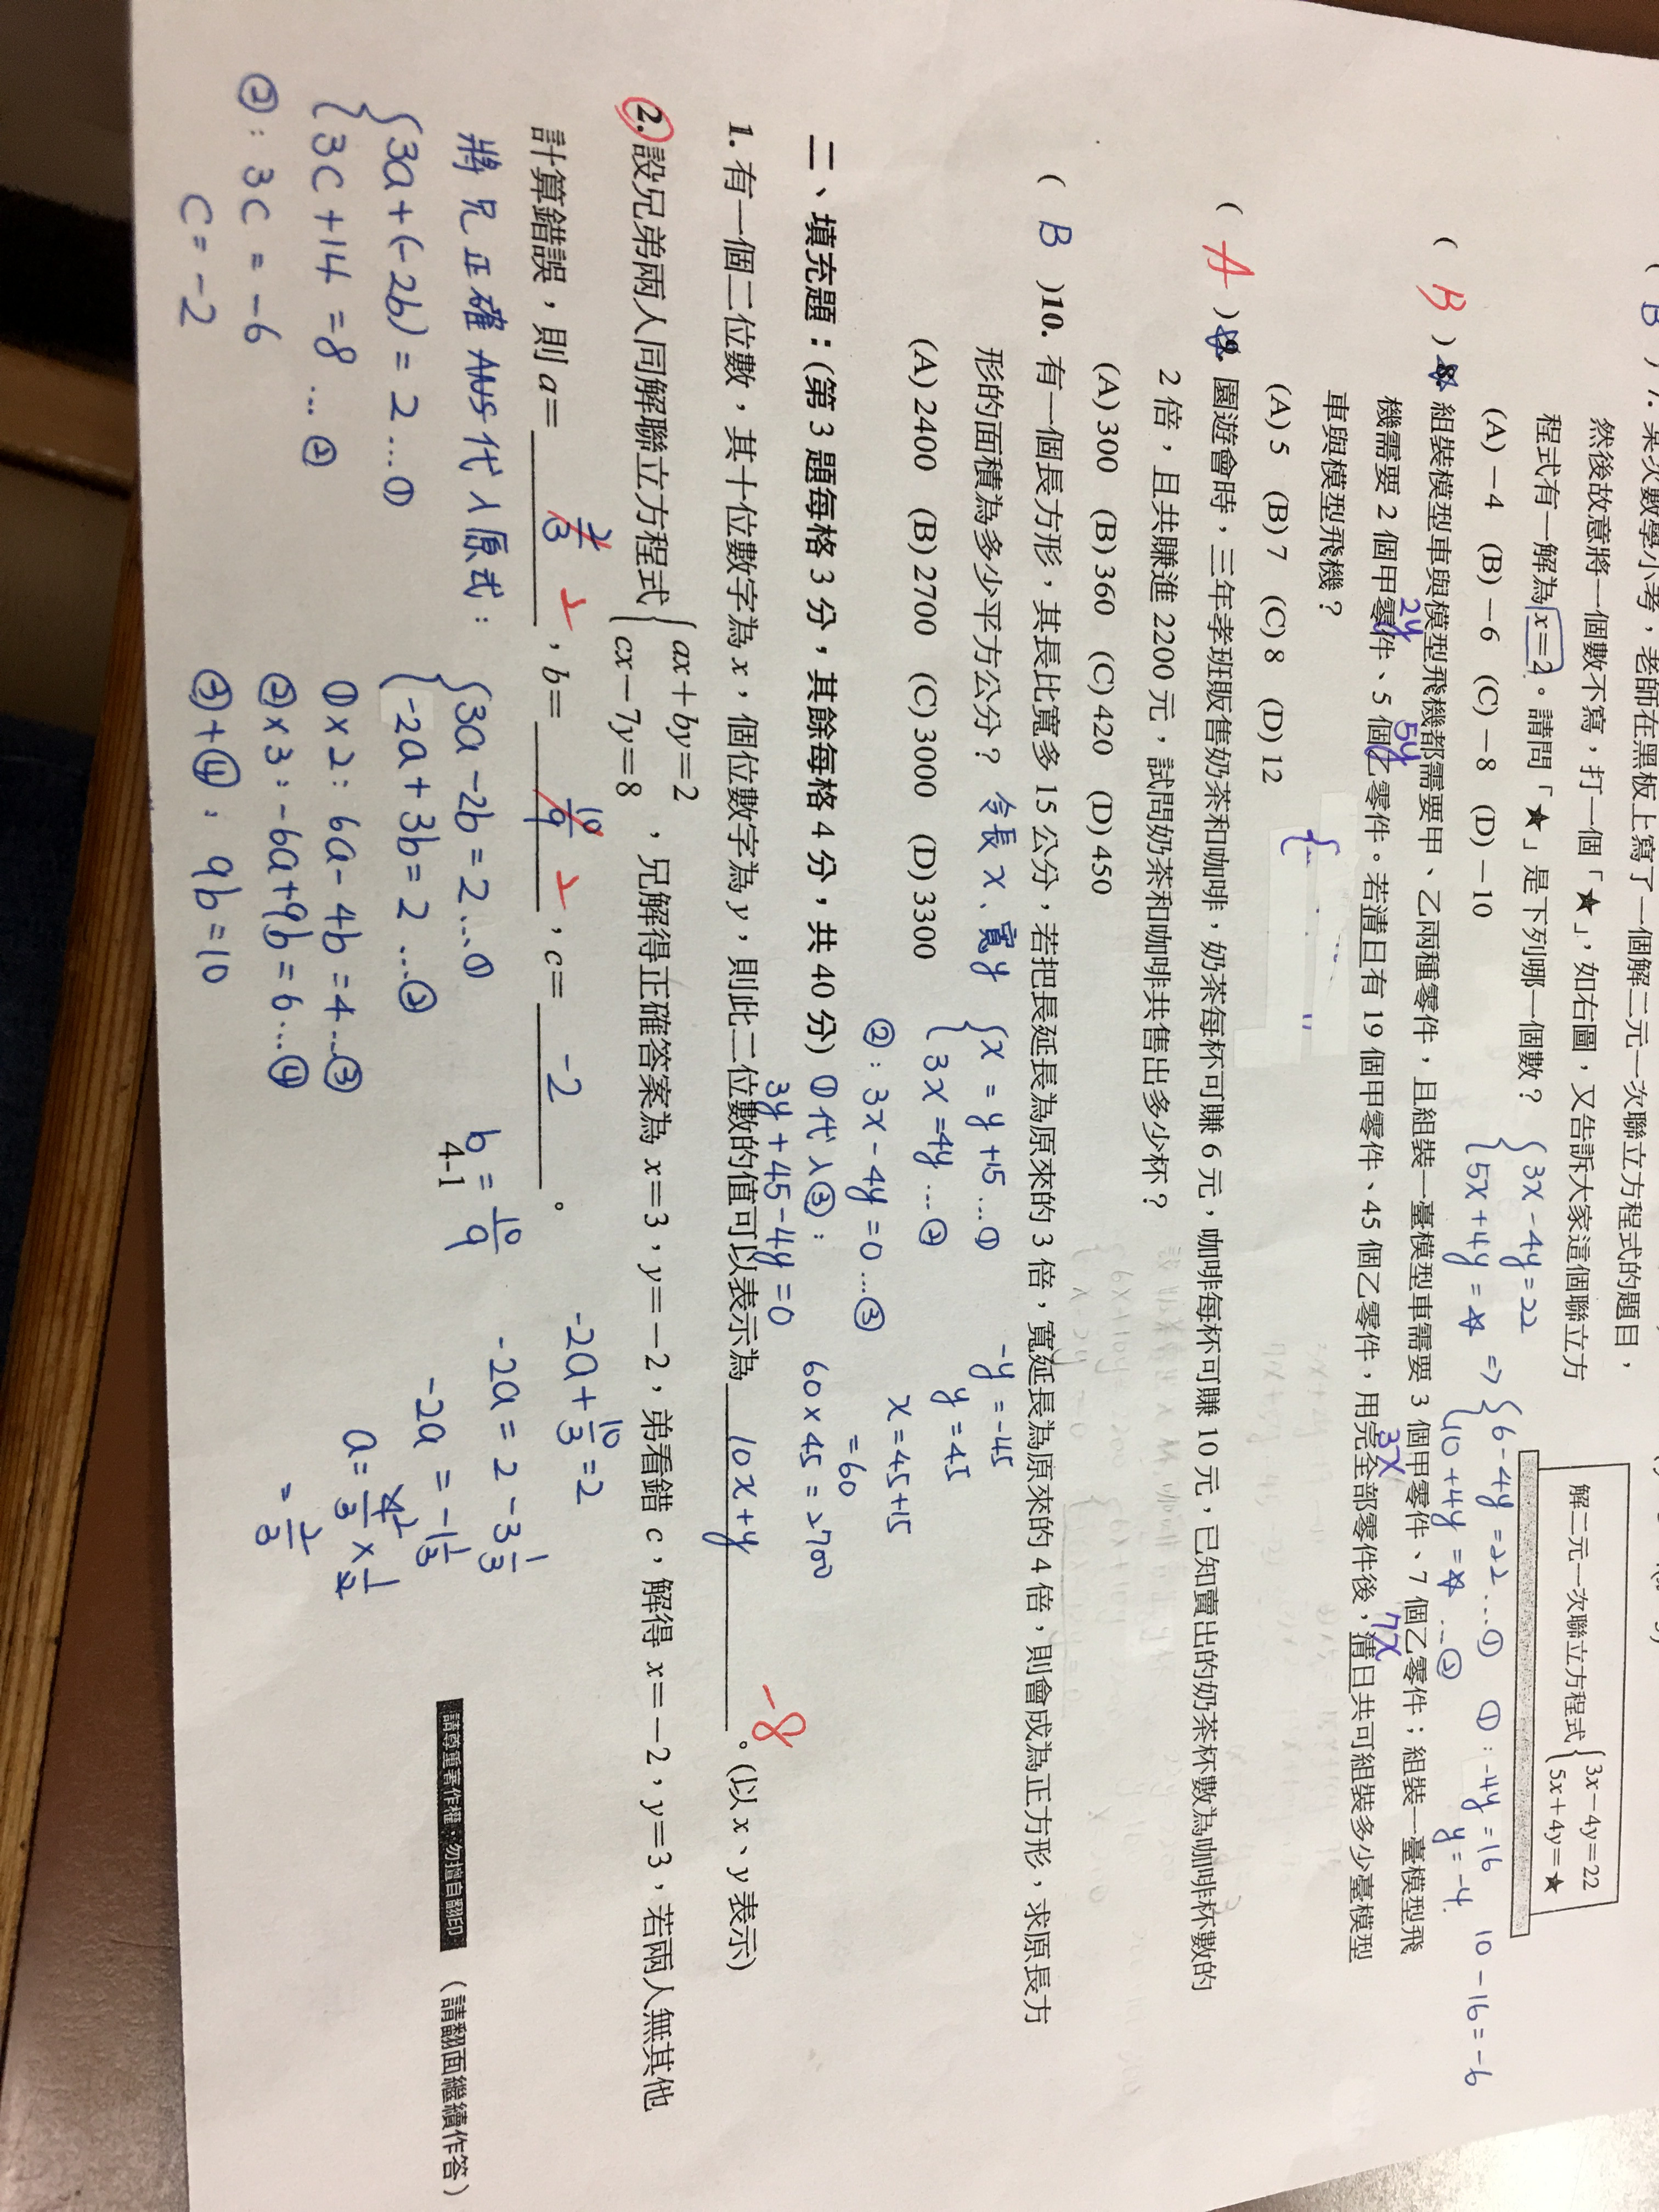 ( B ) 7. 某次數學小考，老師在黑板上寫了一個解二元一次聯立方程式的題目，
然後故意將一個數不寫，打一個「★」，如右圖，又告訴大家這個聯立方
程式有一解為 x=2。請問「★」是下列哪一個數？
(A) －4 (B) －6 (C) －8 (D) －10
解二元一次聯立方程式 { 3x－4y=22
5x＋4y=★
{ 3x－4y=22
5x+4y=☆
=> { 6-4y=22...①
10+4y=☆ ...②
①: -4y=16
y=-4
10-16=-6
( B ) 8. 組裝模型車與模型飛機都需要甲、乙兩種零件，且組裝一臺模型車需要 3 個甲零件、7 個乙零件；組裝一臺模型飛
機需要 2 個甲零件、5 個乙零件。若清日有 19 個甲零件、45 個乙零件，用完全部零件後，清日共可組裝多少臺模型
車與模型飛機？
2y 5y 3x 7x
(A) 5 (B) 7 (C) 8 (D) 12
( A ) 9. 園遊會時，三年孝班販售奶茶和咖啡，奶茶每杯可賺 6 元，咖啡每杯可賺 10 元，已知賣出的奶茶杯數為咖啡杯數的
2 倍，且共賺進 2200 元，試問奶茶和咖啡共售出多少杯？
(A) 300 (B) 360 (C) 420 (D) 450
( B )10. 有一個長方形，其長比寬多 15 公分，若把長延長為原來的 3 倍，寬延長為原來的 4 倍，則會成為正方形，求原長方
形的面積為多少平方公分？
(A) 2400 (B) 2700 (C) 3000 (D) 3300
令長x、寬y
{ x=y+15...①
3x=4y...②
②: 3x-4y=0...③
①代入③:
3y+45-4y=0
-y=-45
y=45
x=45+15
=60
60×45=2700
二、填充題：(第 3 題每格 3 分，其餘每格 4 分，共 40 分)
1. 有一個二位數，其十位數字為 x，個位數字為 y，則此二位數的值可以表示為 10x+y 。(以 x、y 表示)
-8
2. 設兄弟兩人同解聯立方程式 { ax＋by=2
cx－7y=8 ，兄解得正確答案為 x=3，y=－2，弟看錯 c，解得 x=－2，y=3，若兩人無其他
計算錯誤，則 a= 2/3 2 ，b= 10/9 2 ，c= -2 。
將兄正確ANS代入原式:
{ 3a+(-2b)=2...①
3c+14=8...②
②: 3c=-6
c=-2
{ 3a-2b=2...①
-2a+3b=2...②
①×2: 6a-4b=4...③
②×3: -6a+9b=6...④
③+④: 9b=10
b=10/9
-2a+10/3=2
-2a=2-3 1/3
-2a=-1 1/3
a=4/3×1/2
=2/3
4-1
請尊重著作權‧勿擅自翻印
(請翻面繼續作答)